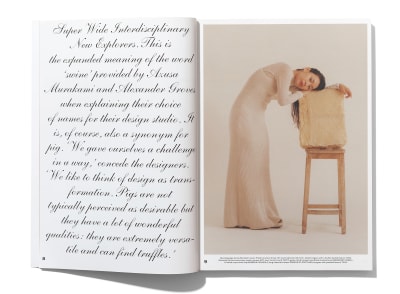 Super Wide Interdisciplinary
New Explorers. This is
the expanded meaning of the word
'swine' provided by Azusa
Murakami and Alexander Groves
when explaining their choice
of names for their design studio. It
is, of course, also a synonym for
pig. 'We gave ourselves a challenge
in a way,' concede the designers.
'We like to think of design as trans-
formation. Pigs are not
typically perceived as desirable but
they have a lot of wonderful
qualities: they are extremely versa-
tile and can find truffles.'